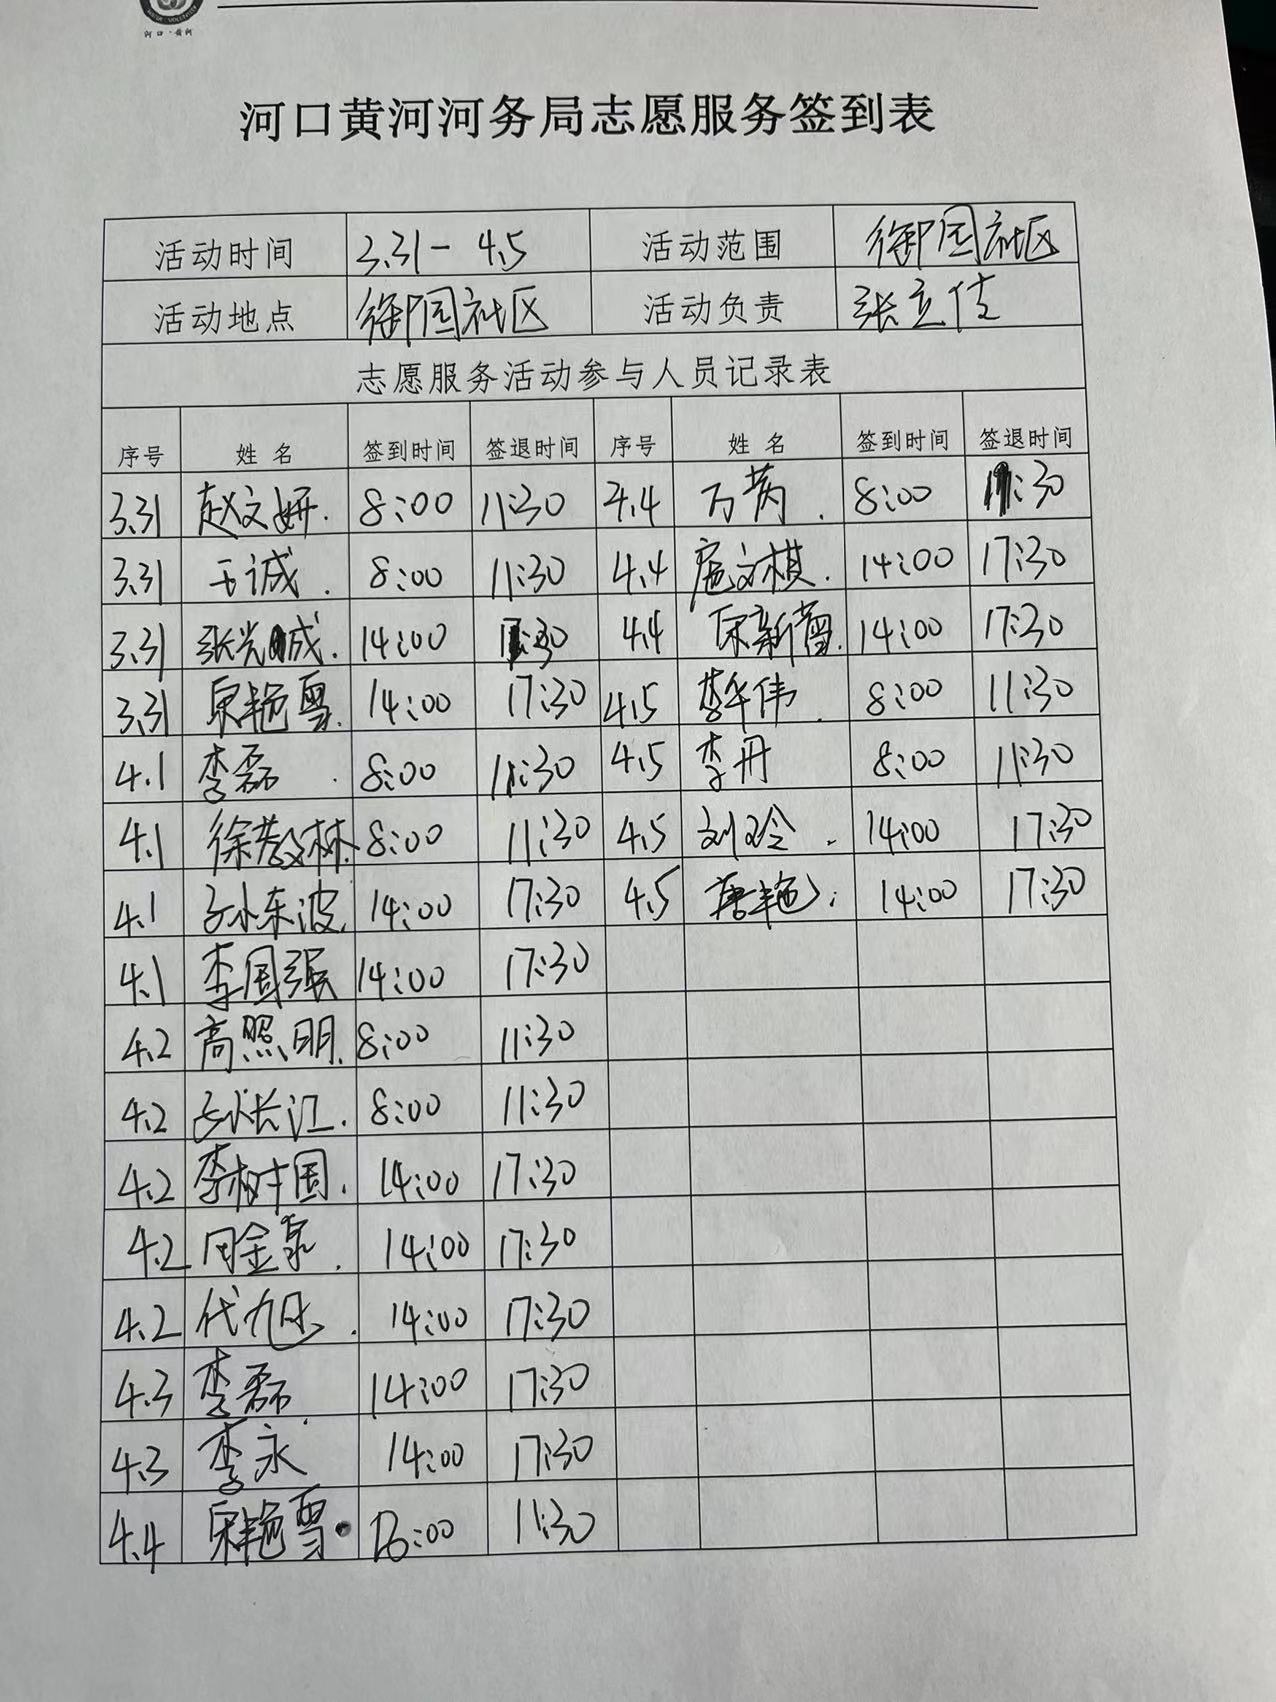 河口·黄河
河口黄河河务局志愿服务签到表
活动时间 3.31-4.5 活动范围 御园社区
活动地点 御园社区 活动负责 张立佳
志愿服务活动参与人员记录表
序号 姓名 签到时间 签退时间 序号 姓名 签到时间 签退时间
3.31 赵文妍. 8:00 11:30 4.4 万芮. 8:00 11:30
3.31 王诚. 8:00 11:30 4.4 扈文棋. 14:00 17:30
3.31 张光诚. 14:00 17:30 4.4 宋新蕾. 14:00 17:30
3.31 宋艳雪. 14:00 17:30 4.5 李华伟. 8:00 11:30
4.1 李磊. 8:00 11:30 4.5 李丹 8:00 11:30
4.1 徐敬林. 8:00 11:30 4.5 刘玲. 14:00 17:30
4.1 孙东波. 14:00 17:30 4.5 唐艳. 14:00 17:30
4.1 李国强 14:00 17:30
4.2 高照明. 8:00 11:30
4.2 孙长江. 8:00 11:30
4.2 李树国. 14:00 17:30
4.2 周金泉. 14:00 17:30
4.2 代旭. 14:00 17:30
4.3 李磊. 14:00 17:30
4.3 李永 14:00 17:30
4.4 宋艳雪. 8:00 11:30